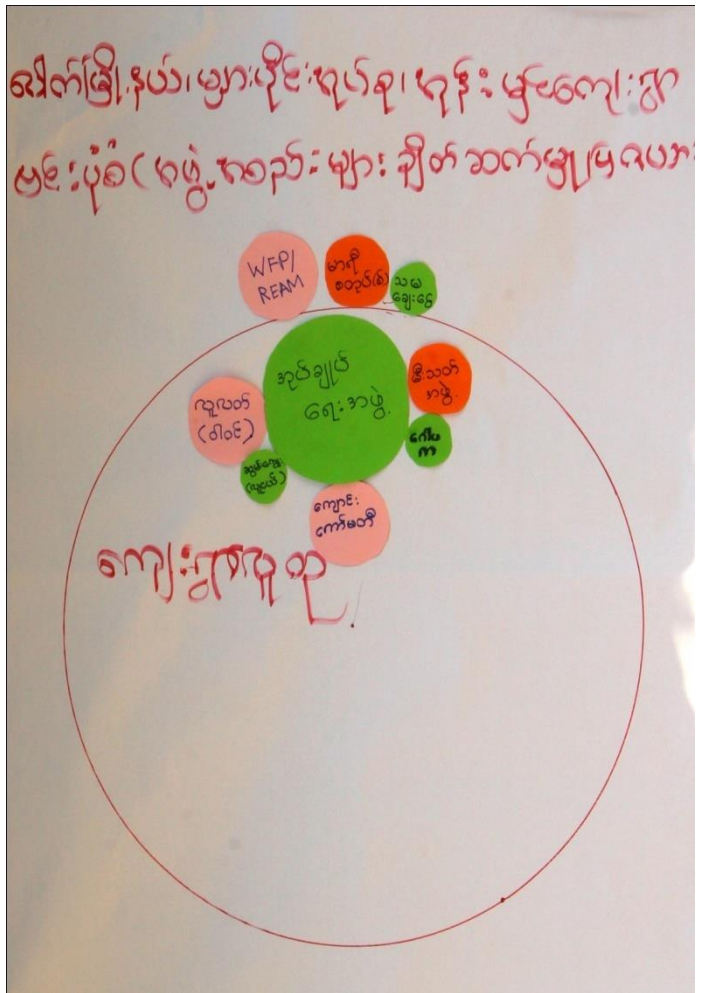 ပေါက်မြို့နယ်၊ များပိုင်းအုပ်စု၊ ကုန်းမြင့်ကျေးရွာ
ဗင်းပုံစံ (အဖွဲ့အစည်းများ ချိတ်ဆက်မှု
WFP/
REAM
မာရီ
စတုပ်(စ်)
သမ
ချေးငွေ
အုပ်ချုပ်
ရေးအဖွဲ့
မီးသတ်
အဖွဲ့
လူလတ်
(ဝါဝင်)
(လူငယ်)
ကျောင်း
ကော်မတီ
ကျေးရွာလူထု